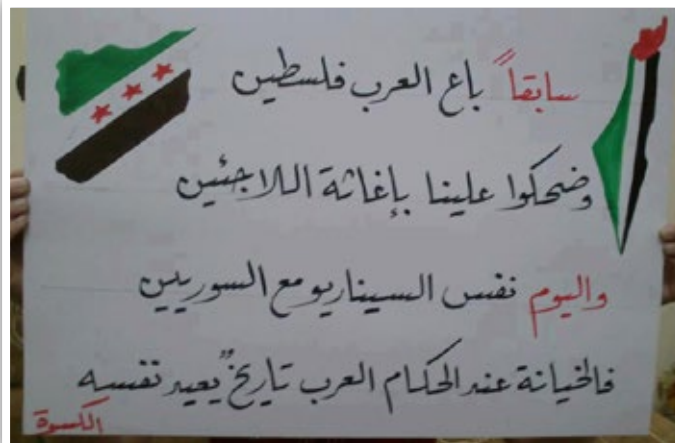 سابقاً باع العرب فلسطين
وضحكوا علينا بإغاثة اللاجئين
واليوم نفس السيناريو مع السوريين
فالخيانة عند الحكام العرب تاريخٌ يعيد نفسه
الكسوة